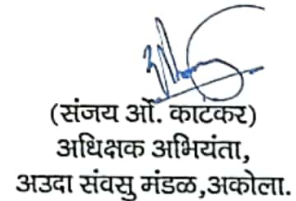 (संजय ओं. काटकर)
अधिक्षक अभियंता,
अउदा संवसु मंडळ,अकोला.